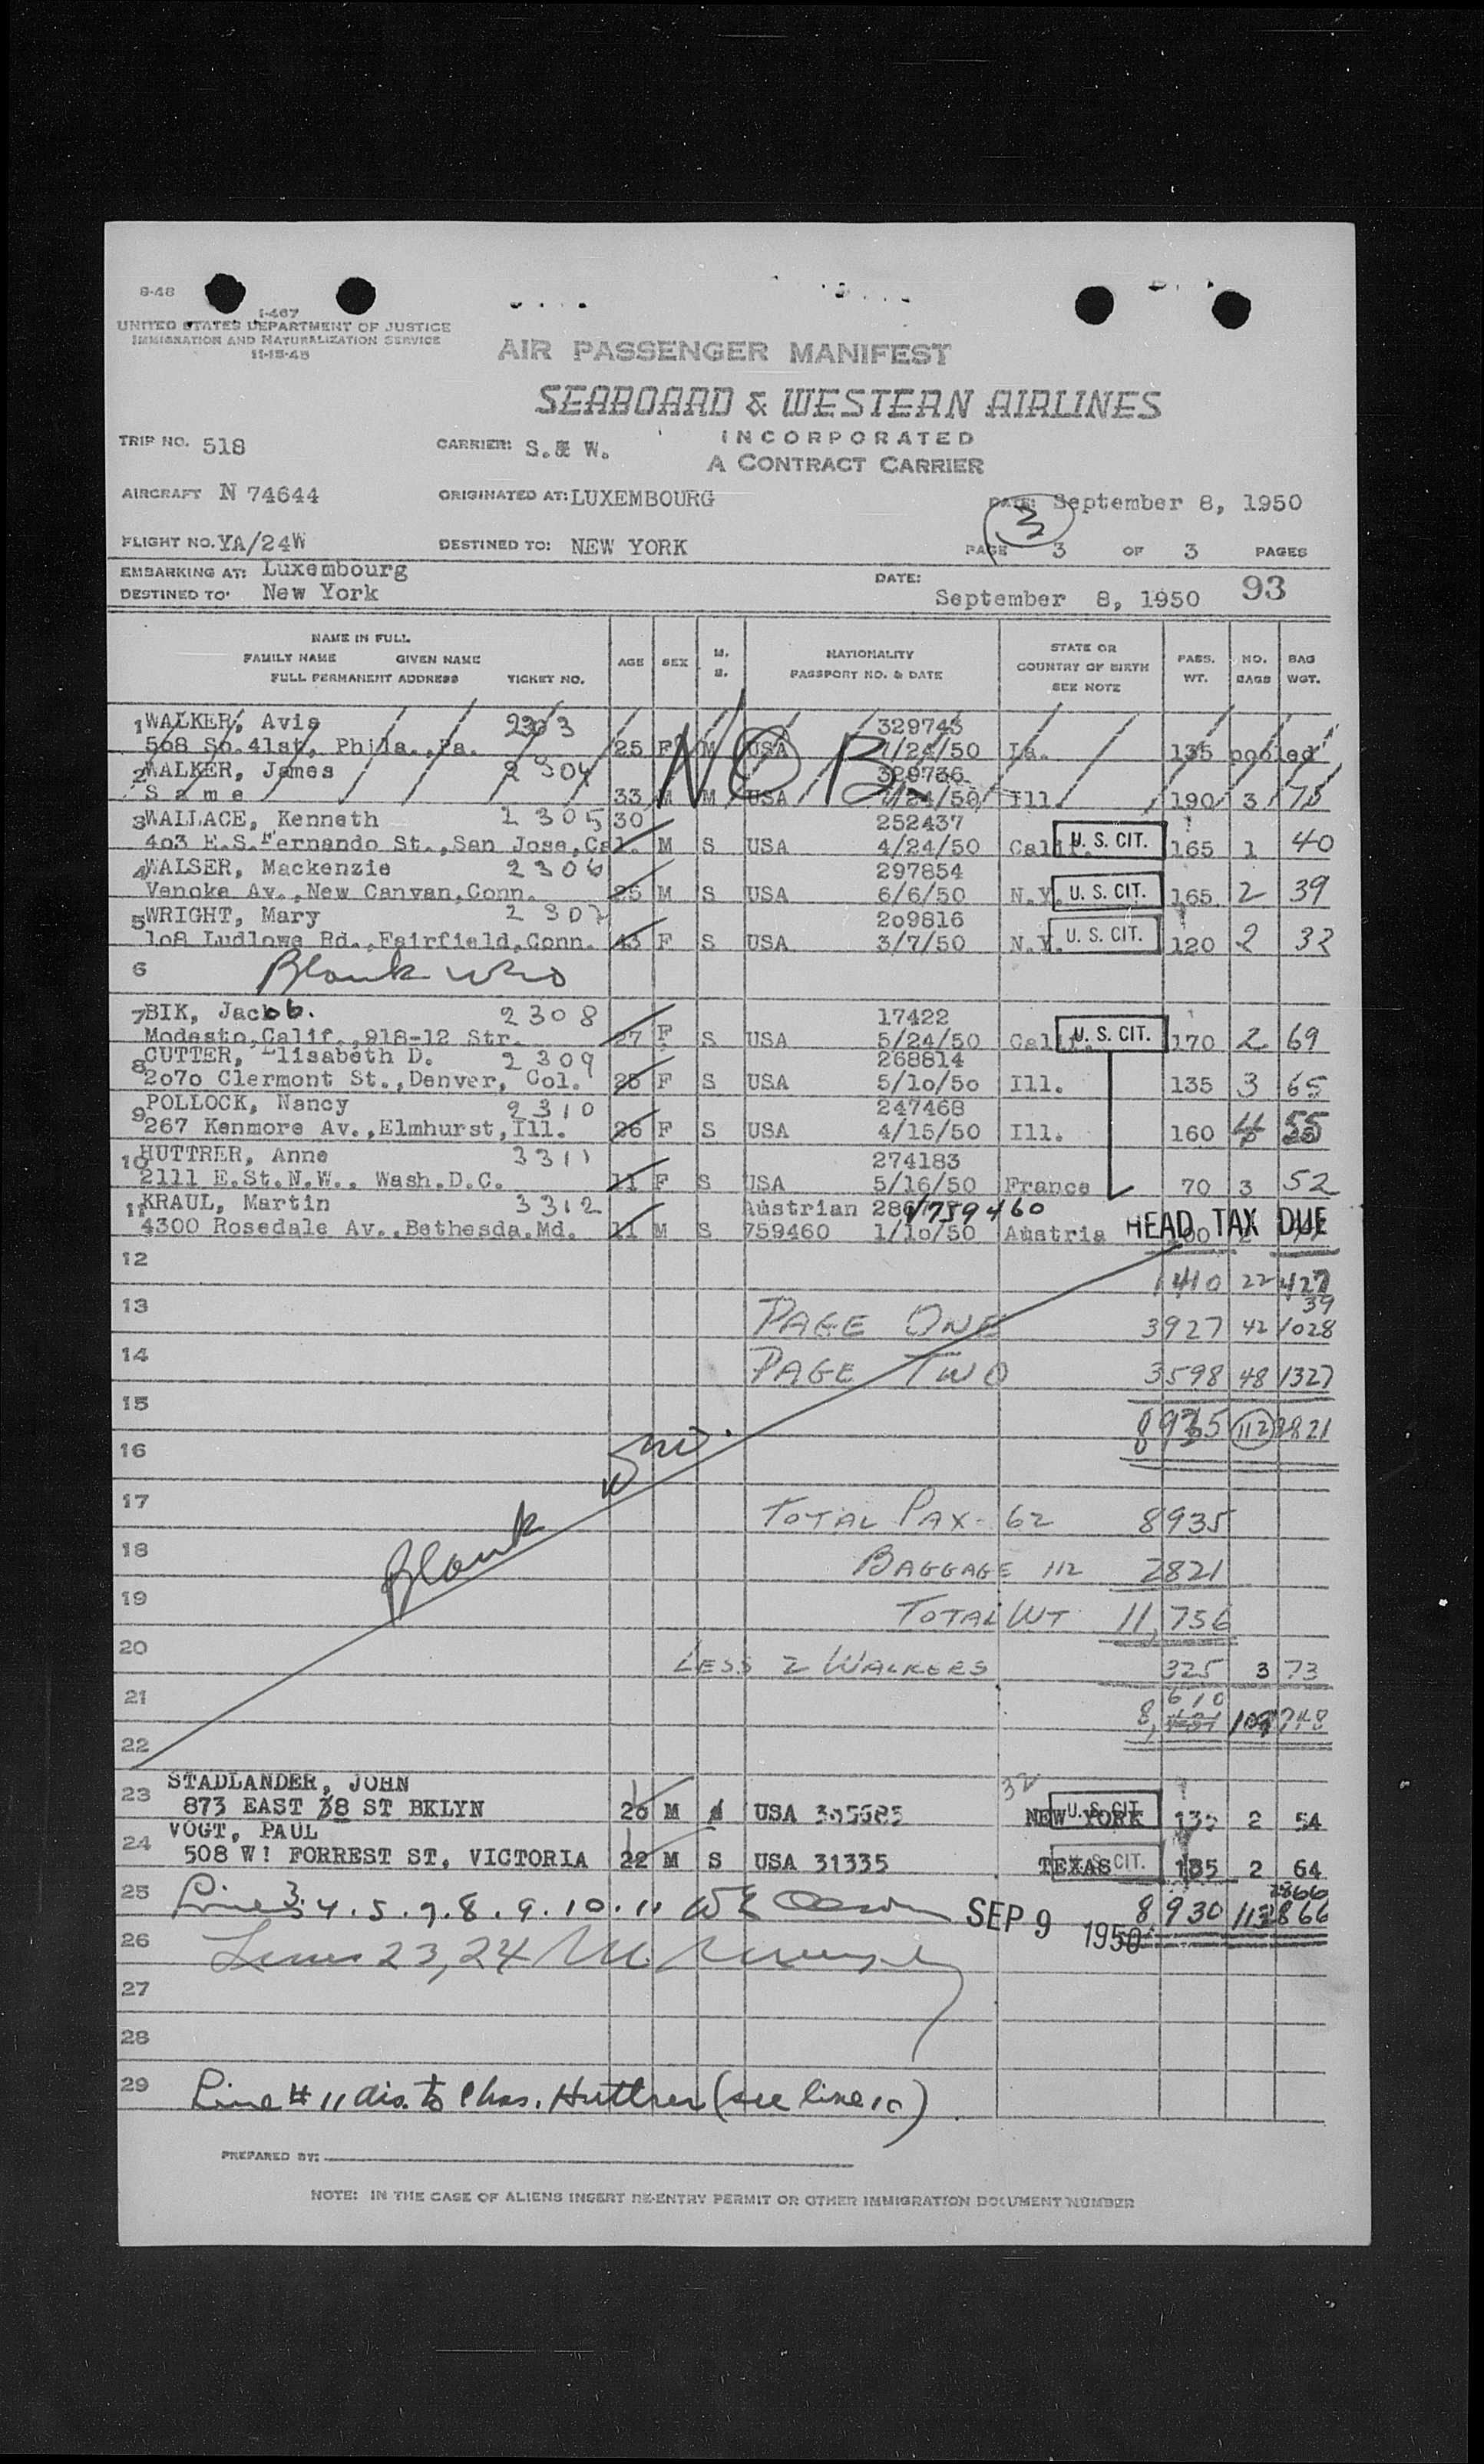 8-48
I-467
UNITED STATES DEPARTMENT OF JUSTICE
IMMIGRATION AND NATURALIZATION SERVICE
11-15-45
AIR PASSENGER MANIFEST
SEABOARD & WESTERN AIRLINES
INCORPORATED
A CONTRACT CARRIER
TRIP NO. 518 CARRIER: S. & W.
AIRCRAFT N 74644 ORIGINATED AT: LUXEMBOURG DATE: September 8, 1950
3
FLIGHT NO. YA/24W DESTINED TO: NEW YORK PAGE 3 OF 3 PAGES
EMBARKING AT: Luxembourg DATE:
DESTINED TO: New York September 8, 1950 93
NAME IN FULL
FAMILY NAME GIVEN NAME
FULL PERMANENT ADDRESS TICKET NO. AGE SEX M. S. NATIONALITY PASSPORT NO. & DATE STATE OR COUNTRY OF BIRTH SEE NOTE PASS. WT. NO. BAGS BAG WGT.
1 WALKER, Avis 2303 329743
568 So. 41st, Phila., Pa. 25 F M USA /24/50 Ia. 135 pooled
NOB
2 WALKER, James 2304 329736
Same 33 M M USA /24/50 Ill. 190 3 73
3 WALLACE, Kenneth 2305 30 252437
403 E.S. Fernando St., San Jose, Cal. M S USA 4/24/50 Calif. U. S. CIT. 165 1 40
4 WALSER, Mackenzie 2306 297854
Venoke Av., New Canvan, Conn. 25 M S USA 6/6/50 N.Y. U. S. CIT. 165 2 39
5 WRIGHT, Mary 2307 209816
108 Ludlowe Rd., Fairfield, Conn. 43 F S USA 3/7/50 N.Y. U. S. CIT. 120 2 32
6 Blank
7 BIK, Jacob. 2308 17422
Modesto, Calif., 918-12 Str. 27 F S USA 5/24/50 Calif. U. S. CIT. 170 2 69
8 CUTTER, Elisabeth D. 2309 268814
2070 Clermont St., Denver, Col. 25 F S USA 5/10/50 Ill. 135 3 65
9 POLLOCK, Nancy 2310 247468
267 Kenmore Av., Elmhurst, Ill. 26 F S USA 4/15/50 Ill. 160 4 55
10 HUTTRER, Anne 3311 274183
2111 E.St.N.W., Wash.D.C. 11 F S USA 5/16/50 France 70 3 52
11 KRAUL, Martin 3312 Austrian
4300 Rosedale Av., Bethesda, Md. 11 M S 759460 1/10/50 Austria HEAD TAX DUE
12 1410 22 427
39
13 PAGE ONE 3927 42 1028
14 PAGE TWO 3598 48 1327
15 8935 112 2821
16
17 TOTAL PAX- 62 8935
Blank
18 BAGGAGE 112 2821
19 TOTAL WT 11,756
20 LESS 2 WALKERS 325 3 73
21 8,610 109 2748
22
23 STADLANDER, JOHN
873 EAST 38 ST BKLYN 26 M USA NEW YORK U. S. CIT. 135 2 54
24 VOGT, PAUL
508 W! FORREST ST, VICTORIA 22 M S USA 31335 TEXAS U. S. CIT. 185 2 64
2866
25 Line 3. 4. 5. 7. 8. 9. 10. 11 SEP 9 1950 8,930 113 2866
26 Lines 23, 24
27
28
29 Line # 11 dis. to Chas. Huttrer (see line 10)
PREPARED BY:
NOTE: IN THE CASE OF ALIENS INSERT RE-ENTRY PERMIT OR OTHER IMMIGRATION DOCUMENT NUMBER